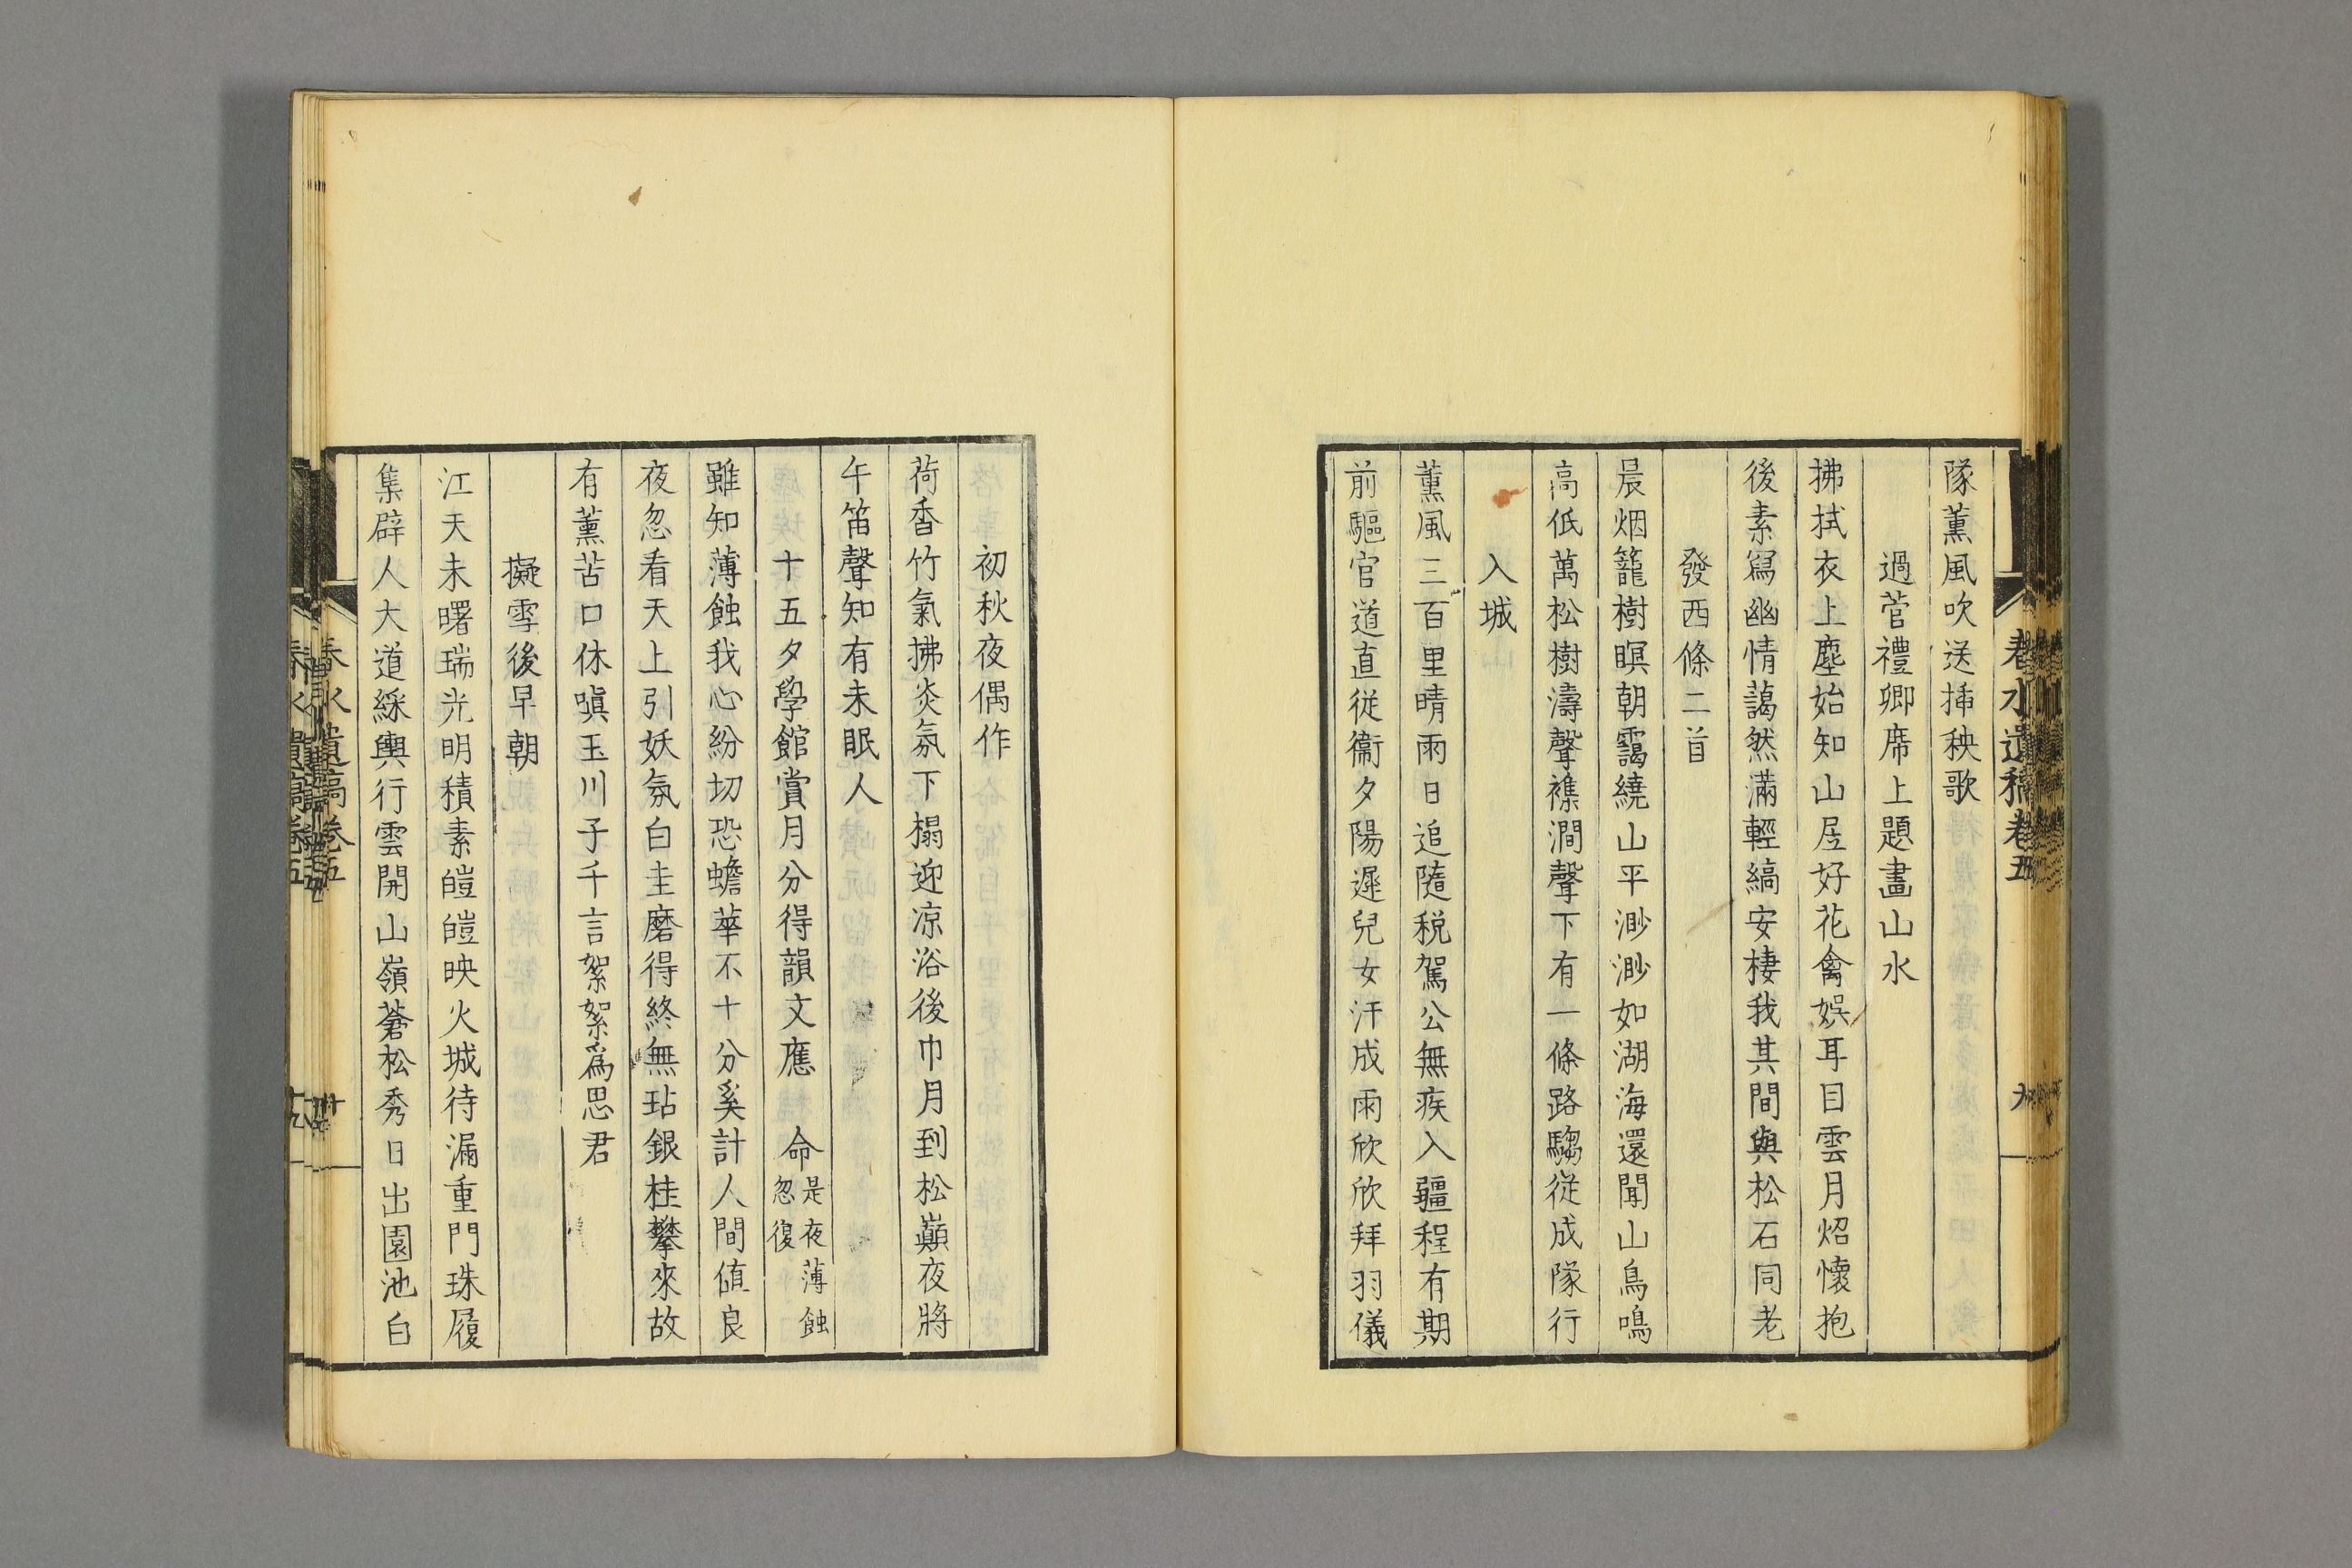 隊薰風吹送挿秧歌
過菅禮卿席上題畵山水
拂拭衣上塵始知山居好花禽娛耳目雲月炤懷抱
後素寫幽情藹然滿輕縞安棲我其間與松石同老
發西條二首
晨烟籠樹暝朝靄繞山平渺渺如湖海還聞山鳥鳴
高低萬松樹濤聲襍澗聲下有一條路騶從成隊行
入城
薰風三百里晴雨日追隨税駕公無疾入疆程有期
前驅官道直從衞夕陽遲兒女汗成雨欣欣拜羽儀
初秋夜偶作
荷香竹氣拂炎氛下榻迎凉浴後巾月到松巓夜將
午笛聲知有未眠人
十五夕學館賞月分得韻文應　命是夜薄蝕忽復
雖知薄蝕我心紛切恐蟾華不十分奚計人間値良
夜忽看天上引妖氛白圭磨得終無玷銀桂攀來故
有薰苦口休嗔玉川子千言絮絮爲思君
擬雪後早朝
江天未曙瑞光明積素皚皚映火城待漏重門珠履
集辟人大道綵輿行雲開山嶺蒼松秀日出園池白
春水遺稿卷五